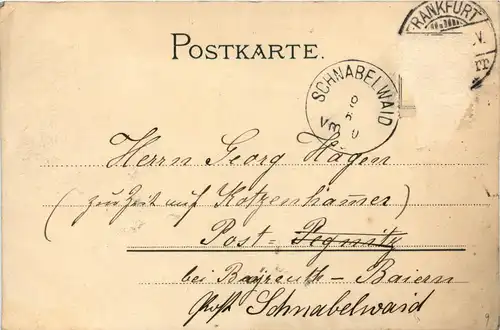 POSTKARTE.
FRANKFURT
SCHNABELWAID
Herrn Georg Hagen
(zur Zeit auf Kotzenhammer)
Post = Pegnitz
bei Bayreuth – Baiern
Post Schnabelwaid